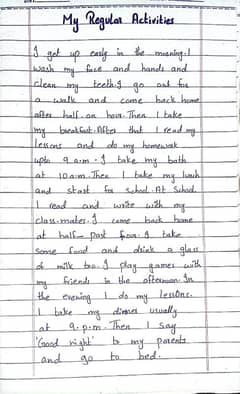 My Regular Activities
I get up early in the morning. I
wash my face and hands and
clean my teeth. I go out for
a walk and come back home
after half-an hour. Then I take
my breakfast. After that I read my
lessons and do my homework
upto 9 a.m. I take my bath
at 10 a.m. Then I take my lunch
and start for school. At School
I read and write with my
class-mates. I came back home
at half- past four. I take
some food and drink a glass
of milk too. I play games with
my friends in the afternoon. In
the evening I do my lessons.
I take my dinner usually
at 9. p.m. Then I say
'Good night' to my parents
and go to bed.